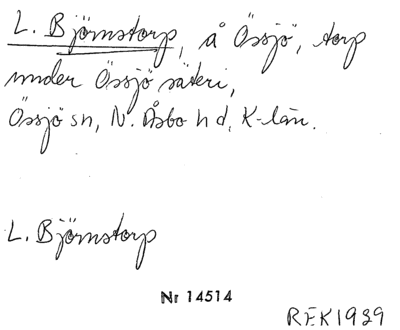 L. Björnstorp, å Össjö, torp
under Össjö säteri,
Össjö sn, N. Åsbo hd, K-län.
L. Björnstorp
Nr 14514
REK1939